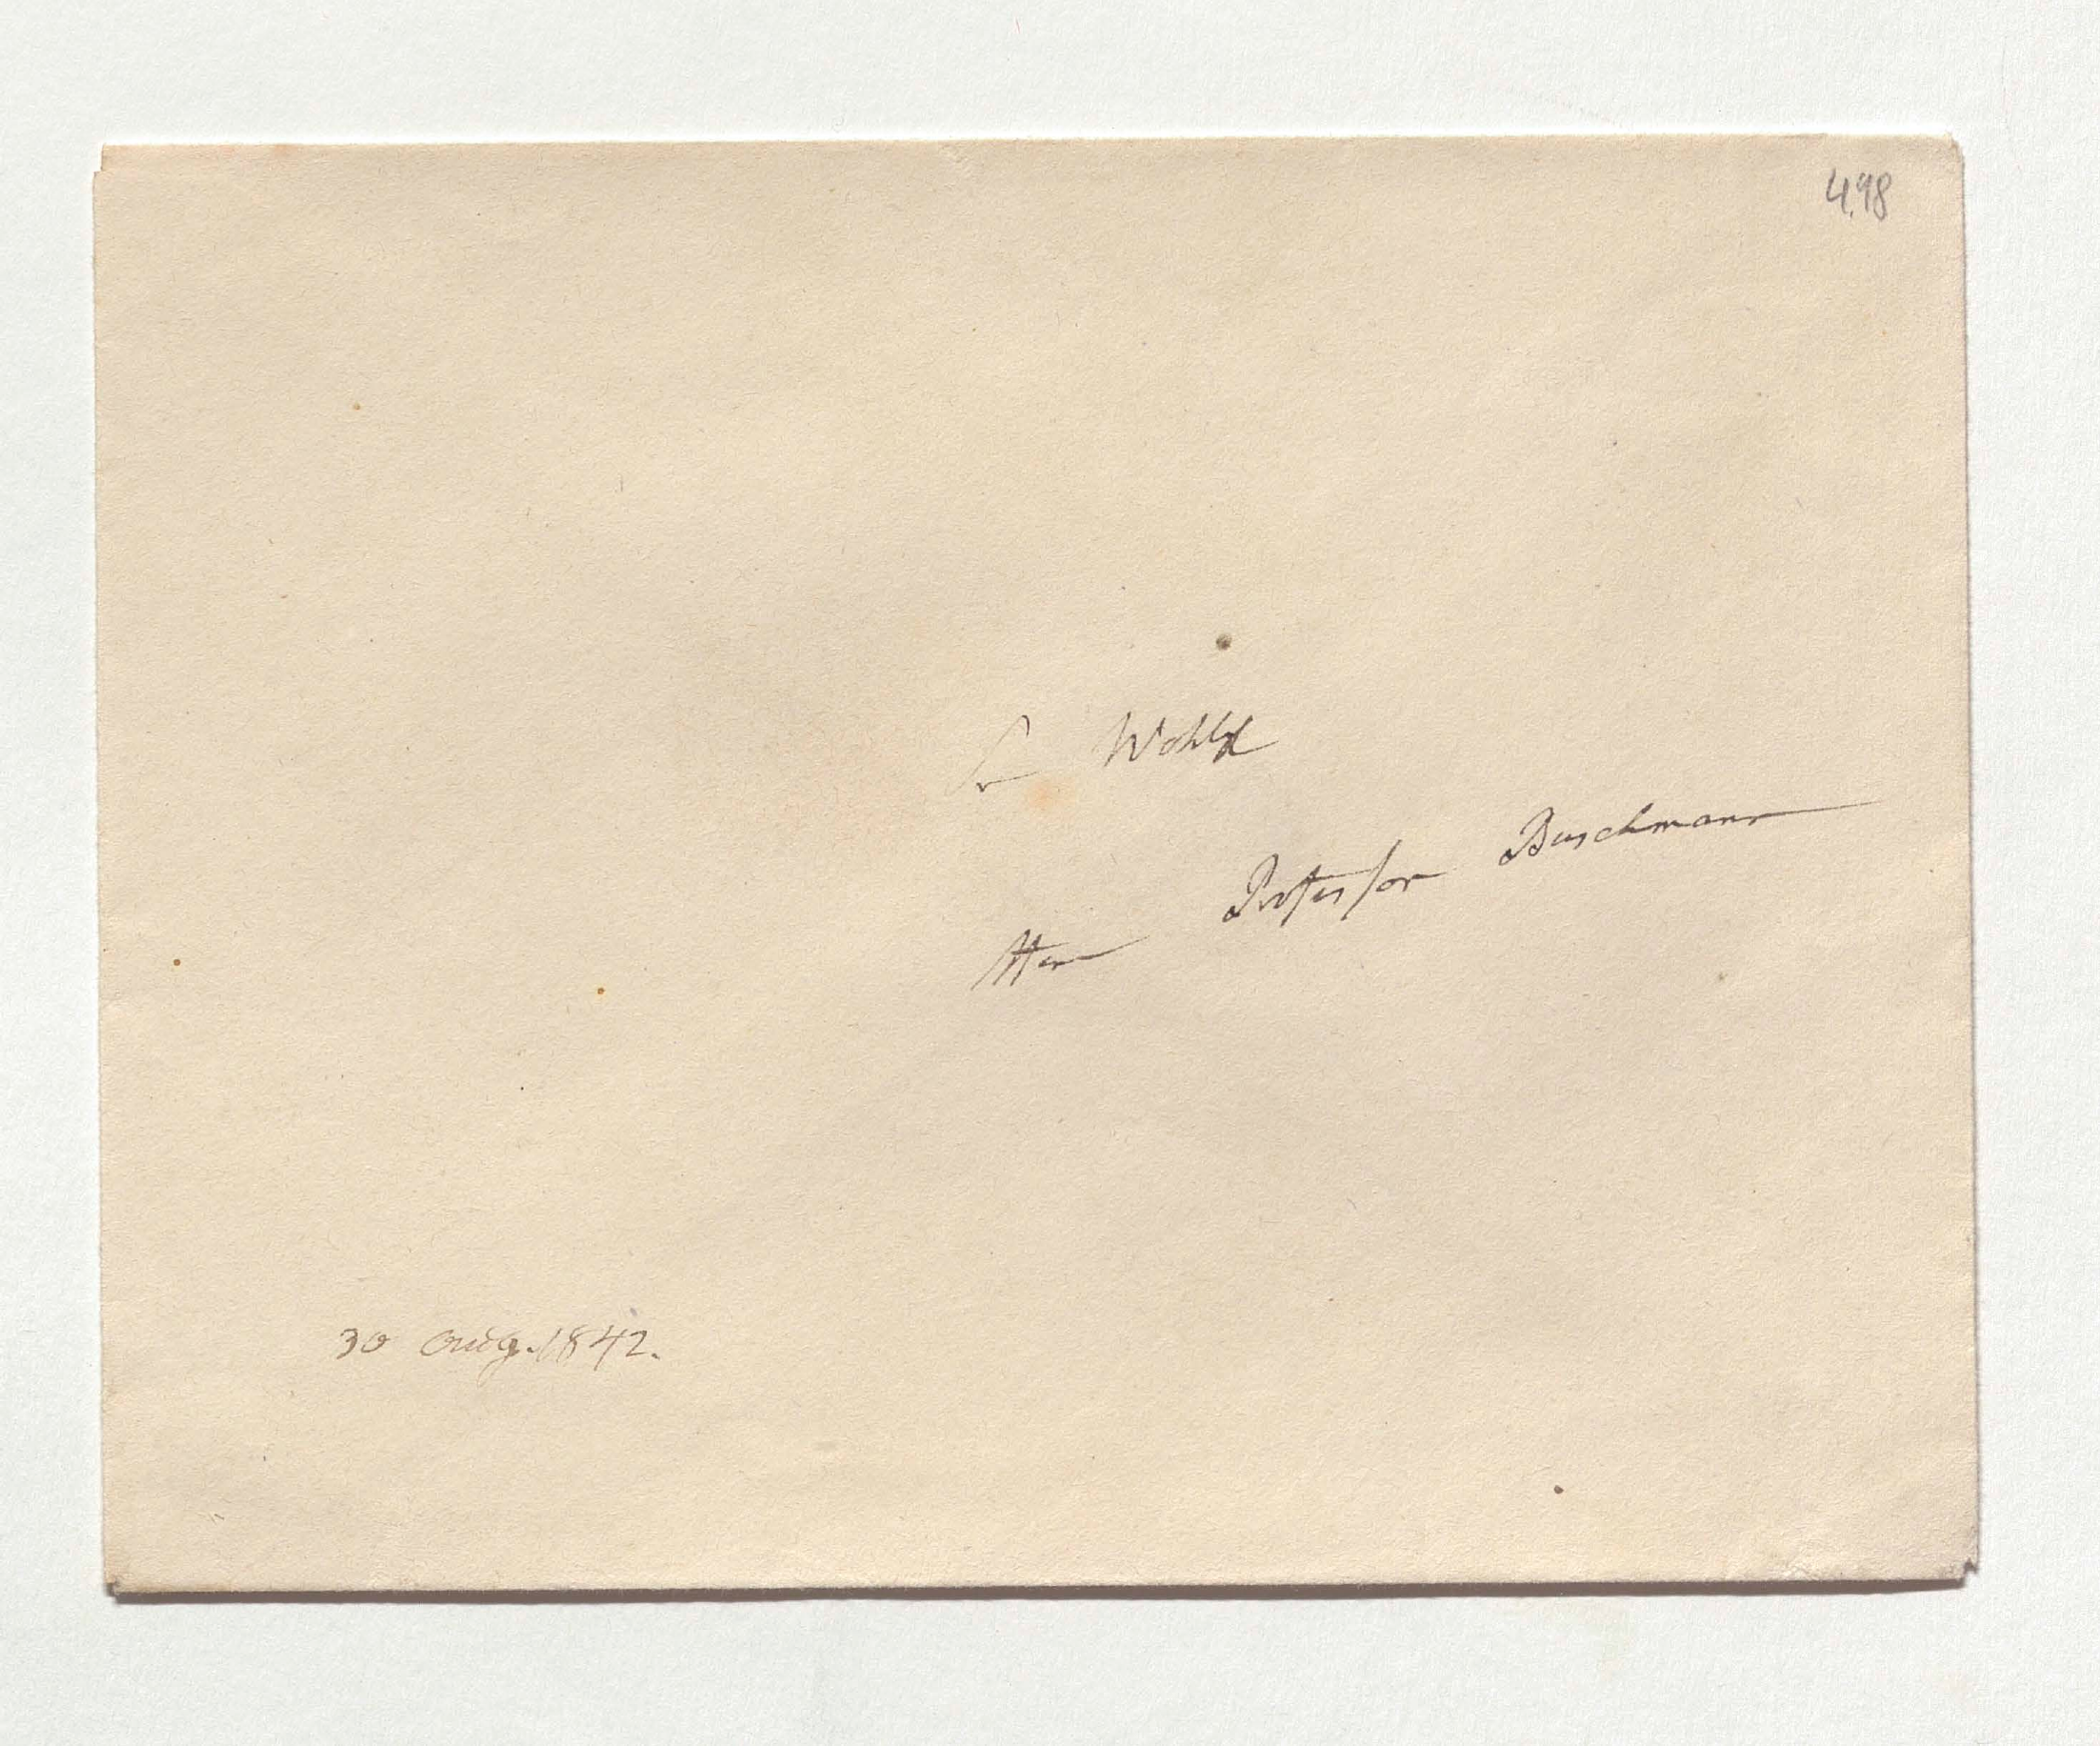 498
Sr Wohlg
Herrn Professor Buschmann
30 Aug. 1842.